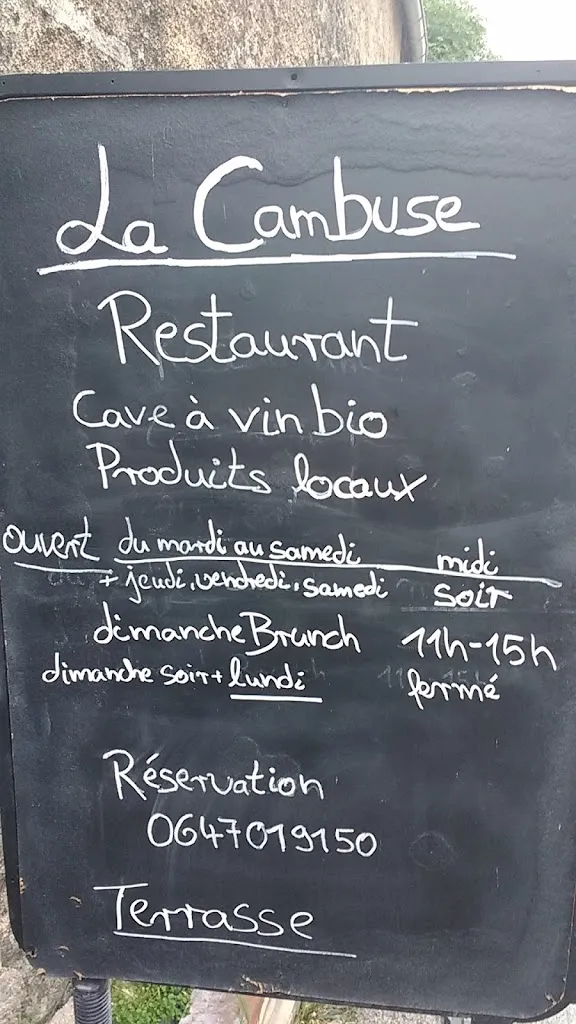 La Cambuse
Restaurant
Cave à vin bio
Produits locaux
ouvert du mardi au samedi midi
+ jeudi, vendredi, samedi soir
dimanche Brunch 11h-15h
dimanche soir + lundi fermé
Réservation
0647019150
Terrasse